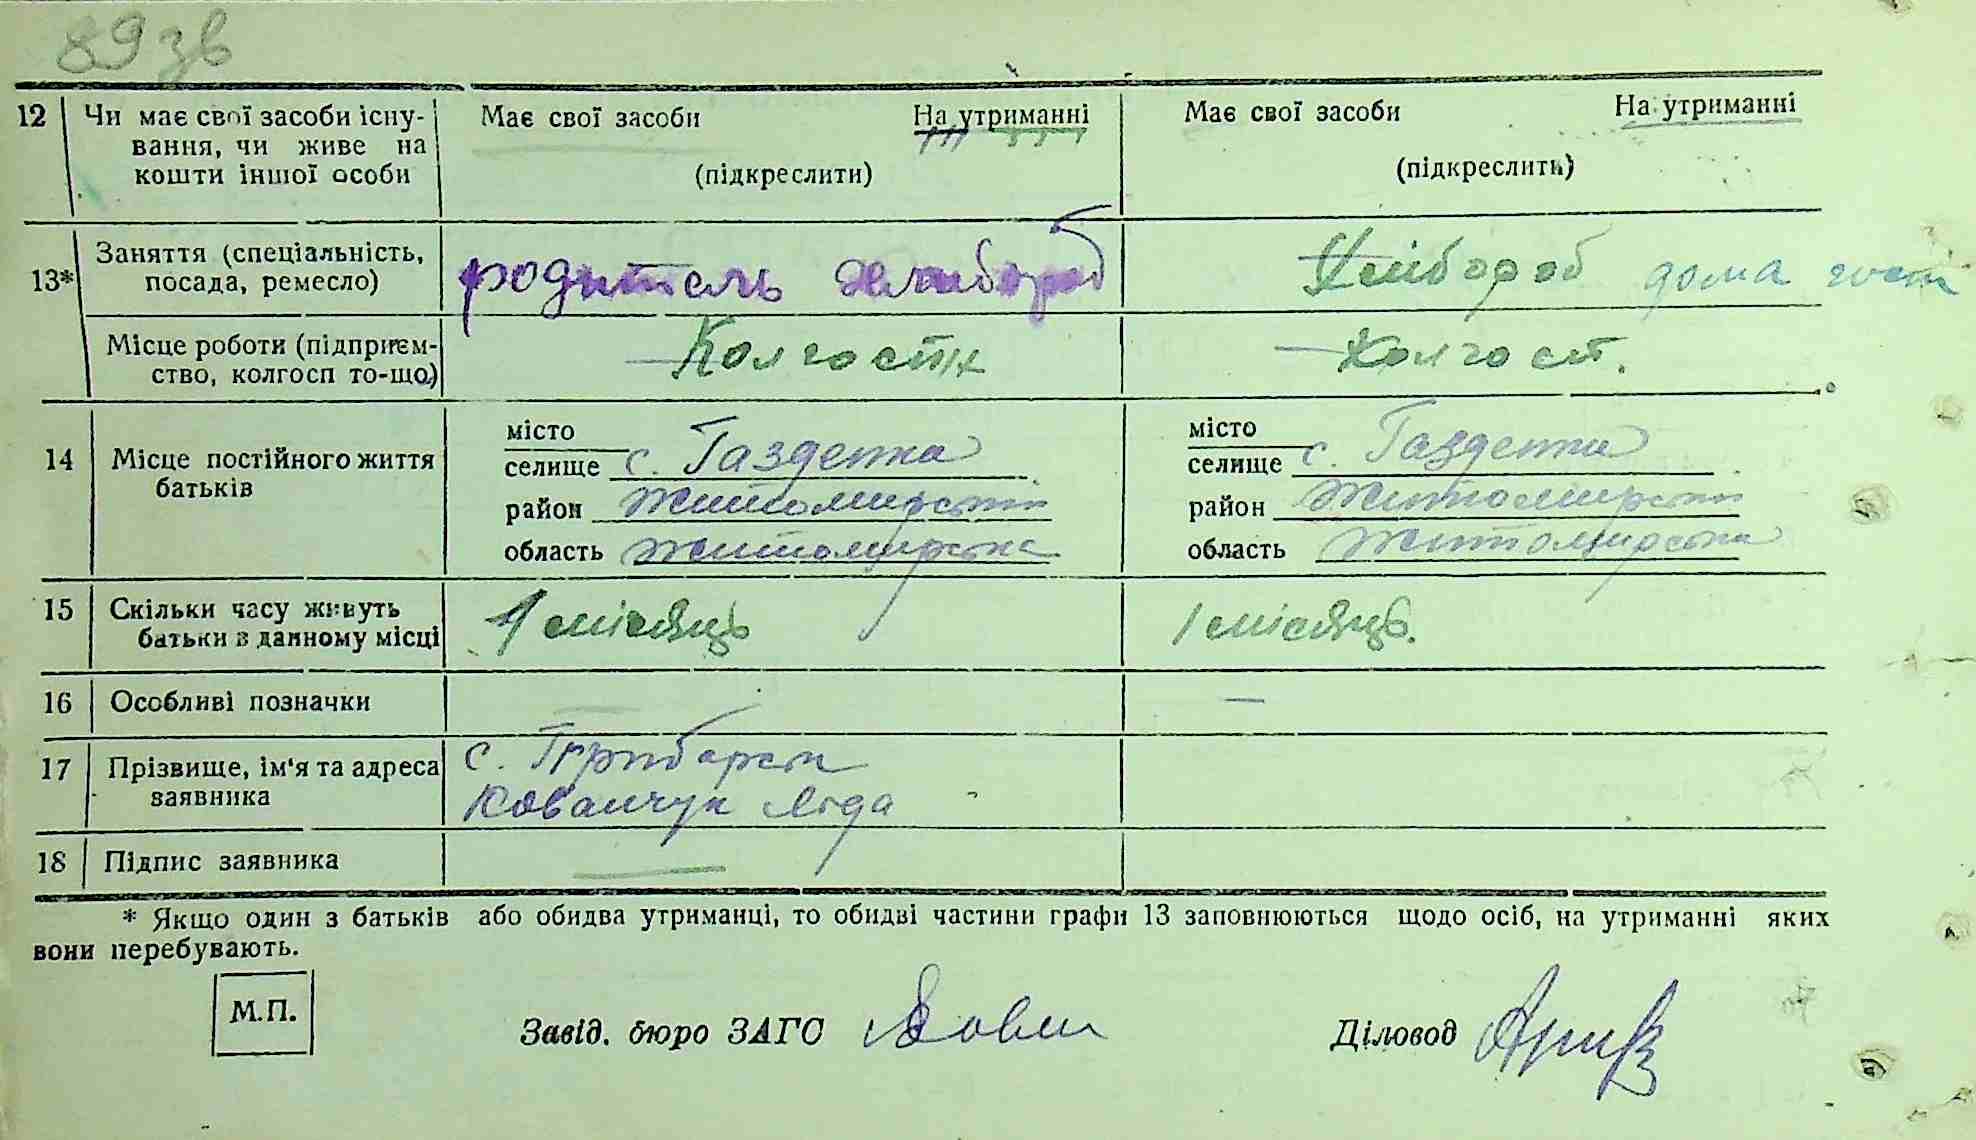 89 зв
12 Чи має свої засоби існу- Має свої засоби На утриманні Має свої засоби На утриманні
вання, чи живе на
кошти іншої особи (підкреслити) (підкреслить)
13* Заняття (спеціальність,
посада, ремесло) родитель хлибороб Хлібороб дома
Місце роботи (підприєм- Колгоспн Колгосп.
ство, колгосп то-що)
14 Місце постійного життя
батьків
місто місто
селище с. Газдепка селище с. Газдепка
район Житомирськи район Житомирськи
область Житомирська область Житомирська
15 Скільки часу живуть 1 місяць 1 місяць.
батьки в данному місці
16 Особливі позначки —
17 Прізвище, ім'я та адреса с.
заявника Ковальчук Ліда
18 Підпис заявника —
* Якщо один з батьків або обидва утриманці, то обидві частини графи 13 заповнюються щодо осіб, на утриманні яких
вони перебувають.
М.П. Завід. бюро ЗАГС Діловод